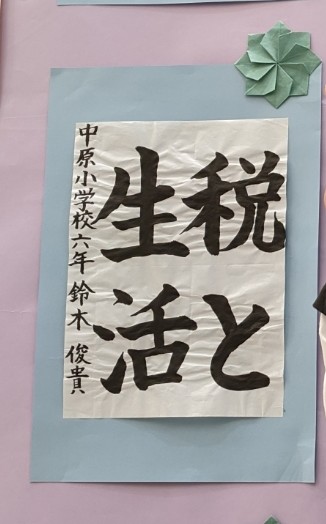 税と
生活
中原小学校六年 鈴木 俊貴